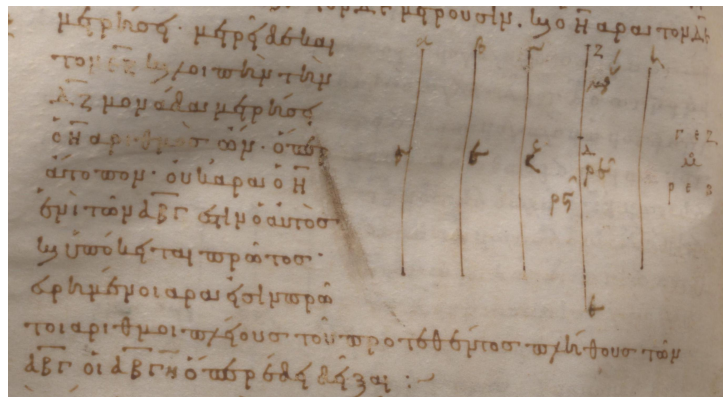 μετροῦσιν. καὶ ὁ Η ἄρα τὸν ΔΕ
μετρήσει. μετρεῖ δὲ καὶ
τὸν ΕΖ καὶ λοιπὴν τὴν
ΔΖ μονάδα μετρήσει
ὁ Η ἀριθμὸς ὤν. ὅπερ
ἄτοπον. οὐκ ἄρα ὁ Η
ἑνὶ τῶν ΑΒΓ ἐστὶν ὁ αὐτὸς
καὶ ὑπόκειται πρῶτος.
εὑρημένοι ἄρα εἰσὶν πρῶ
τοι ἀριθμοὶ πλείους τοῦ προτεθέντος πλήθους τῶν
ΑΒΓ οἱ ΑΒΓΗ ὅπερ ἔδει δεῖξαι :~